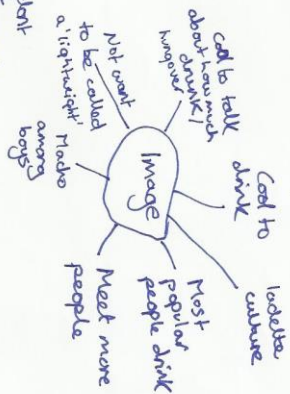 Image
Cool to
drink
ladette
culture
Most
popular
people drink
Meet more
people
Macho
among
boys
Not want
to be called
a 'lightweight'
Cool to talk
about how much
drunk /
hungover